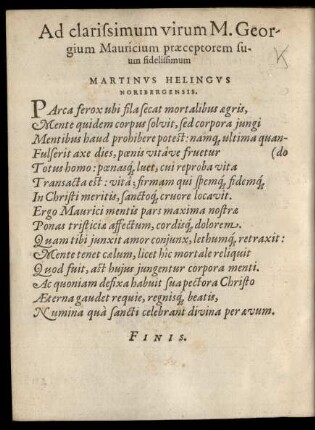 Ad clariſsimum virum M. Geor-
gium Mauricium præceptorem ſu-
um fideliſsimum
MARTINVS HELINGVS
NORIBERGENSIS.
PArca ferox ubi fila ſecat mortalibus ægris,
Mente quidem corpus ſolvit, ſed corpora jungi
Mentibus haud prohibere poteſt: namq́, ultima quan-
Fulſerit axe dies, pœnis vitáve fruetur (do
Totus homo: pœnasq́, luet, cui reproba vita
Transacta eſt: vitâ, firmam qui ſpemq́, fidemq́,
In Chriſti meritis, ſanctoq́, cruore locavit.
Ergo Maurici mentis pars maxima noſtræ
Ponas triſticiæ affectum, cordisq́, dolorem.
Quam tibi junxit amor conjunx, lethumq́, retraxit:
Mente tenet cælum, licet hic mortale reliquit
Quod fuit, aſt hujus jungentur corpora menti.
Ac quoniam defixa habuit ſua pectora Chriſto
Æterna gaudet requie, regnisq́, beatis,
Numina quà ſancti celebrant divina per ævum.
FINIS.